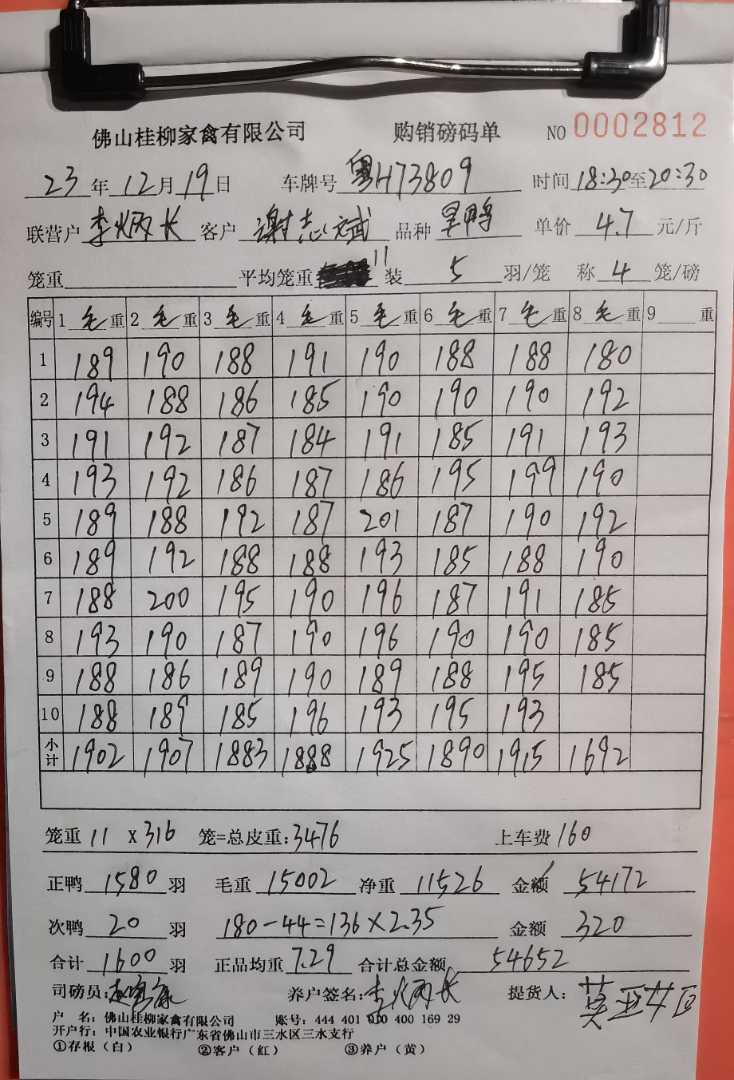 佛山桂柳家禽有限公司 购销磅码单 NO 0002812
23 年 12 月 19 日 车牌号 粤H73809 时间 18:30至20:30
联营户 李炳长 客户 谢志斌 品种 旱鸭 单价 4.7 元/斤
笼重 平均笼重 11 装 5 羽/笼 称 4 笼/磅
编号 1 毛 重 2 毛 重 3 毛 重 4 毛 重 5 毛 重 6 毛 重 7 毛 重 8 毛 重 9 重
1 189 190 188 191 190 188 188 180
2 194 188 186 185 190 190 190 192
3 191 192 187 184 191 185 191 193
4 193 192 186 187 186 195 199 190
5 189 188 192 187 201 187 190 192
6 189 192 188 188 193 185 188 190
7 188 200 195 190 196 187 191 185
8 193 190 187 190 196 190 190 185
9 188 186 189 190 189 188 195 185
10 188 189 185 196 193 195 193
小计 1902 1907 1883 1888 1925 1890 1915 1692
笼重 11 x 316 笼=总皮重: 3476 上车费 160
正鸭 1580 羽 毛重 15002 净重 11526 金额 54172
次鸭 20 羽 180-44=136×2.35 金额 320
合计 1600 羽 正品均重 7.29 合计总金额 54652
司磅员: 养户签名: 李炳长 提货人:
户 名: 佛山桂柳家禽有限公司 账号: 444 401 010 400 169 29
开户行: 中国农业银行广东省佛山市三水区三水支行
①存根（白） ②客户（红） ③养户（黄）